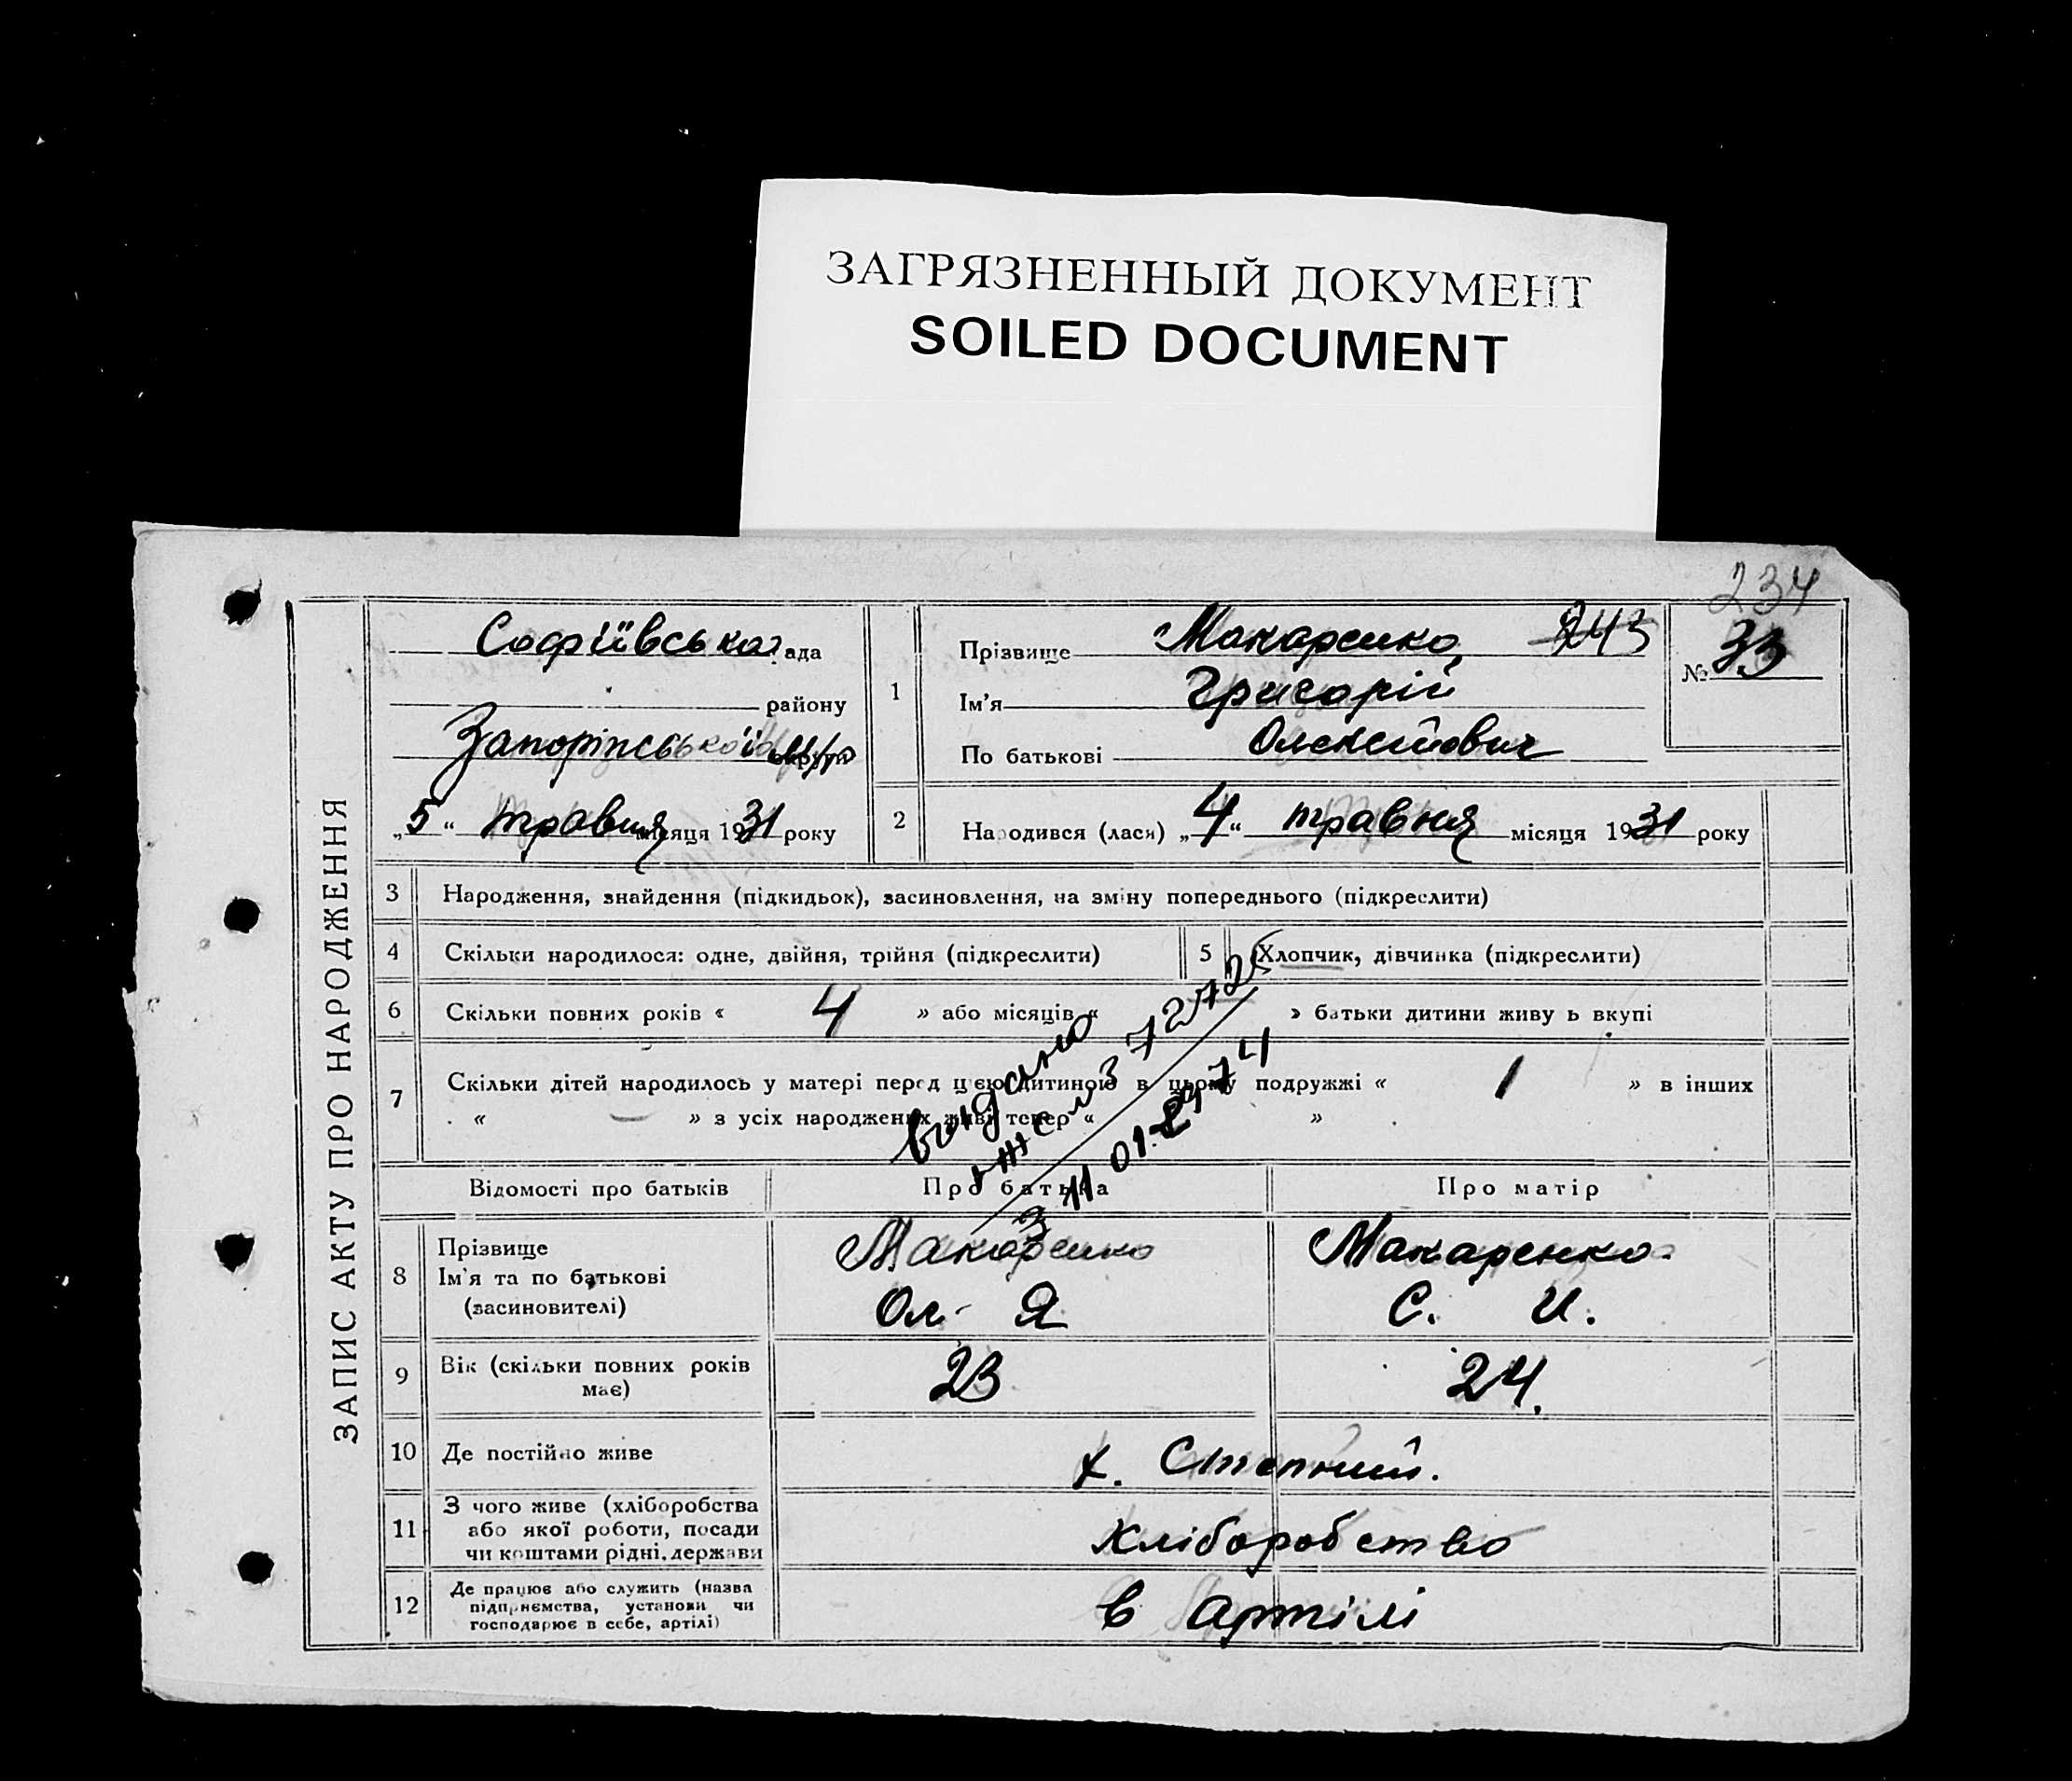 ЗАГРЯЗНЕННЫЙ ДОКУМЕНТ
SOILED DOCUMENT
234
ЗАПИС АКТУ ПРО НАРОДЖЕННЯ
Софіївська рада
району
Запорізської округи
„5“ травня місяця 1931 року
1
Прізвище Макаренко 243
Ім'я Григорій
По батькові Олексійович
№ 33
2 Народився (лася) „4“ травня місяця 1931 року
3 Народження, знайдення (підкидьок), засиновлення, на зміну попереднього (підкреслити)
4 Скільки народилося: одне, двійня, трійня (підкреслити)
5 Хлопчик, дівчинка (підкреслити)
6 Скільки повних років « 4 » або місяців « » батьки дитини живуть вкупі
7 Скільки дітей народилось у матері перед цією дитиною в цьому подружжі « 1 » в інших
« — » з усіх народжених живі тепер « »
видано
372726
11 01. 1974
Відомості про батьків Про батька Про матір
8 Прізвище
Ім'я та по батькові
(засиновителі)
Макаренко
Ол. Я
Макаренко.
С. И.
9 Вік (скільки повних років
має)
23
24.
10 Де постійно живе х. Степний.
11 З чого живе (хліборобства
або якої роботи, посади
чи коштами рідні, держави
Хліборобство
12 Де працює або служить (назва
підприємства, установи чи
господарює в себе, артілі)
в артілі